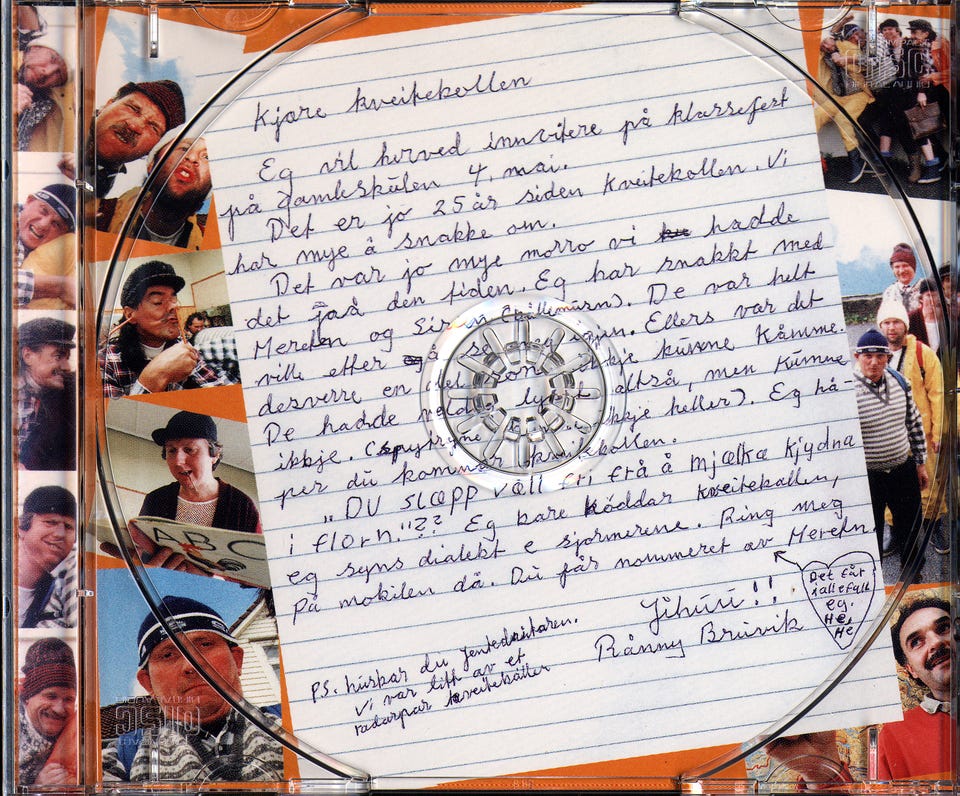 Kjære kveitekollen
Eg vil herved innvitere på klassefest
på Gamleskulen 4. mai.
Det er jo 25 år siden kveitekollen. Vi
har mye å snakke om.
Det var jo mye morro vi hadde
det på den tiden. Eg har snakkt med
Mereten og De var helt
ville etter å Ellers var det
desverre en del som ikkje kunne Kåmme.
De hadde lyst altså, men kunne
ikkje. ikkje heller). Eg hå-
per du kommår kveitekollen.
"DU slæpp väll fri frå å mjælka kjydna
i florn."?? Eg bare köddar kveitekollen,
eg syns dialekt e sjarmerene. Ring meg
på mobilen då. Du får nommeret av Mereten.
Det får
i allefall
eg.
HE,
He
Jihuui!!
Rånny Brúvik
P.S. húskar du jentedåskaren.
Vi var litt av et
radarpar kveitekåller
ABC